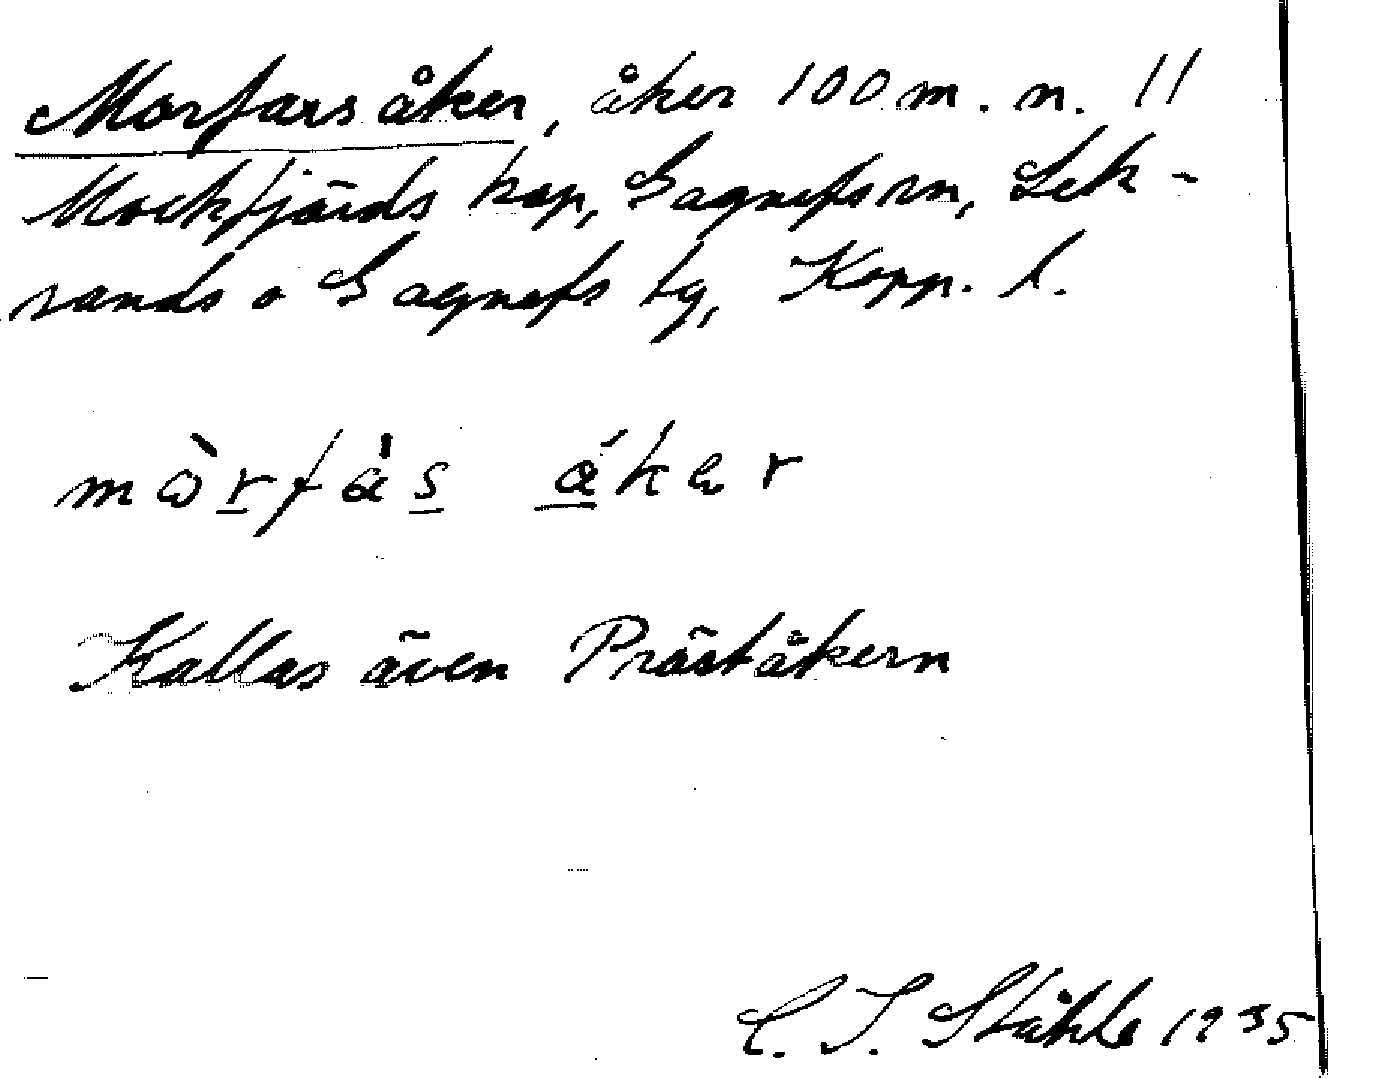 Morfars åker, åker 100 m. n. 11
Mockfjärds kap, Gagnefs sn, Lek-
sands o Gagnefs tg, Kopp. l.
mòrfàs åkər
Kallas även Präståkern
C. I. Ståhle 1935